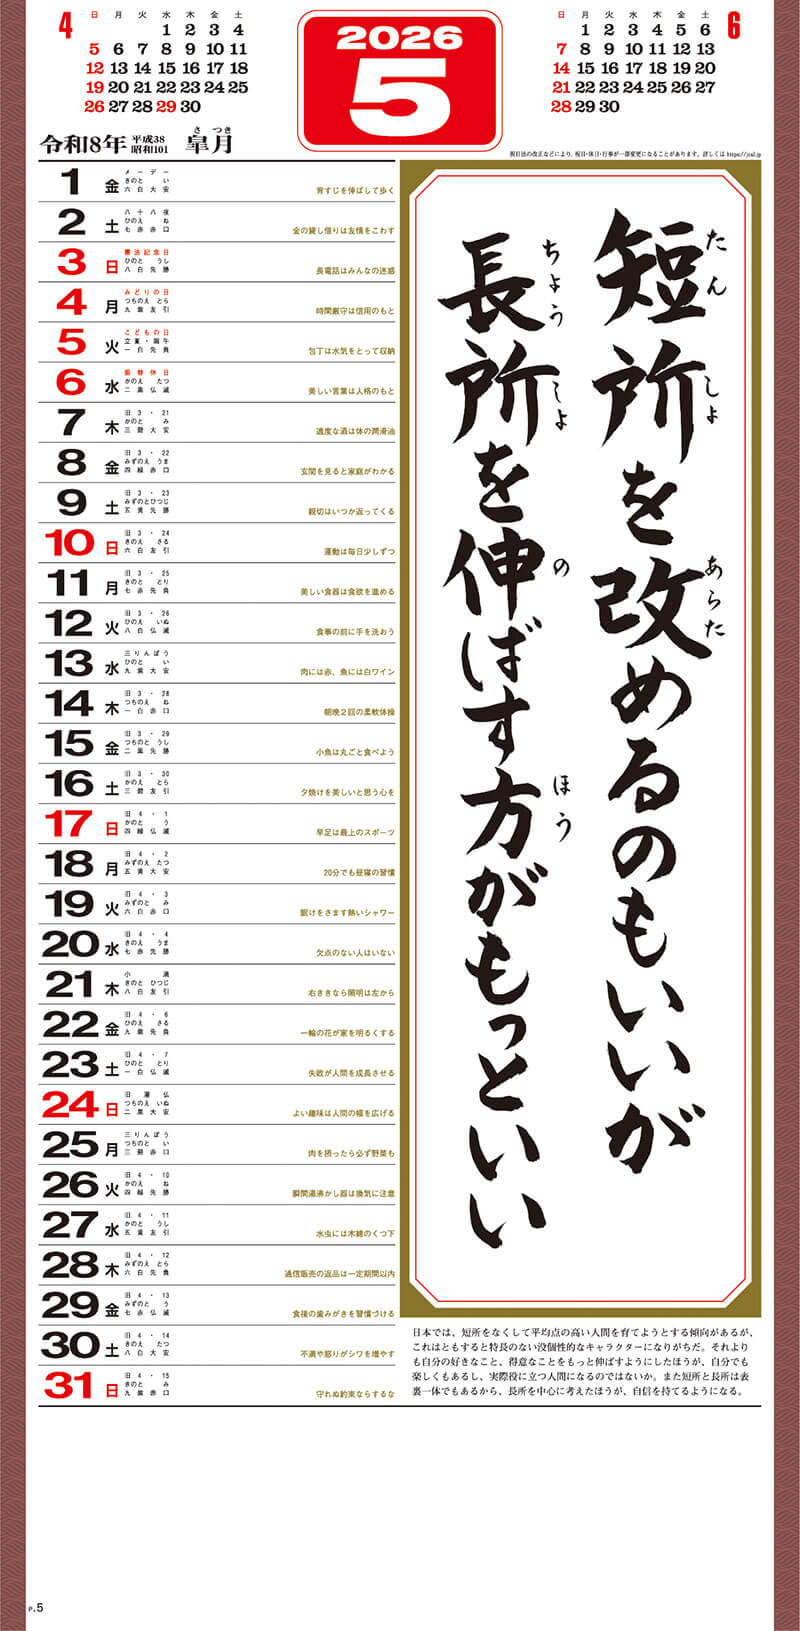 4
日 月 火 水 木 金 土
1 2 3 4
5 6 7 8 9 10 11
12 13 14 15 16 17 18
19 20 21 22 23 24 25
26 27 28 29 30
2026
5
6
日 月 火 水 木 金 土
1 2 3 4 5 6
7 8 9 10 11 12 13
14 15 16 17 18 19 20
21 22 23 24 25 26 27
28 29 30
令和8年 平成38 昭和101 皐月 さつき
祝日法の改正などにより、祝日・休日・行事が一部変更になることがあります。詳しくは https://jcal.jp
1 金 メーデー きのと い 六白大安 背すじを伸ばして歩く
2 土 八十八夜 ひのえ ね 七赤赤口 金の貸し借りは友情をこわす
3 日 憲法記念日 ひのと うし 八白先勝 長電話はみんなの迷惑
4 月 みどりの日 つちのえ とら 九紫友引 時間厳守は信用のもと
5 火 こどもの日 立夏・端午 一白先負 包丁は水気をとって収納
6 水 振替休日 かのえ たつ 二黒仏滅 美しい言葉は人格のもと
7 木 旧3・21 かのと み 三碧大安 適度な酒は体の潤滑油
8 金 旧3・22 みずのえ うま 四緑赤口 玄関を見ると家庭がわかる
9 土 旧3・23 みずのとひつじ 五黄先勝 親切はいつか返ってくる
10 日 旧3・24 きのえ さる 六白友引 運動は毎日少しずつ
11 月 旧3・25 きのと とり 七赤先負 美しい食器は食欲を進める
12 火 旧3・26 ひのえ いぬ 八白仏滅 食事の前に手を洗おう
13 水 三りんぼう ひのと い 九紫大安 肉には赤、魚には白ワイン
14 木 旧3・28 つちのえ ね 一白赤口 朝晩2回の柔軟体操
15 金 旧3・29 つちのと うし 二黒先勝 小魚は丸ごと食べよう
16 土 旧3・30 かのえ とら 三碧友引 夕焼けを美しいと思う心を
17 日 旧4・1 かのと う 四緑仏滅 早足は最上のスポーツ
18 月 旧4・2 みずのえ たつ 五黄大安 20分でも昼寝の習慣
19 火 旧4・3 みずのと み 六白赤口 眠けをさます熱いシャワー
20 水 旧4・4 きのえ うま 七赤先勝 欠点のない人はいない
21 木 小満 きのと ひつじ 八白友引 右ききなら照明は左から
22 金 旧4・6 ひのえ さる 九紫先負 一輪の花が家を明るくする
23 土 旧4・7 ひのと とり 一白仏滅 失敗が人間を成長させる
24 日 旧灌仏 つちのえ いぬ 二黒大安 よい趣味は人間の幅を広げる
25 月 三りんぼう つちのと い 三碧赤口 肉を摂ったら必ず野菜も
26 火 旧4・10 かのえ ね 四緑先勝 瞬間湯沸かし器は換気に注意
27 水 旧4・11 かのと うし 五黄友引 水虫には木綿のくつ下
28 木 旧4・12 みずのえ とら 六白先負 通信販売の返品は一定期間以内
29 金 旧4・13 みずのと う 七赤仏滅 食後の歯みがきを習慣づける
30 土 旧4・14 きのえ たつ 八白大安 不満や怒りがシワを増やす
31 日 旧4・15 きのと み 九紫赤口 守れぬ約束ならするな
短所を改めるのもいいが
たんしょ あらた
長所を伸ばす方がもっといい
ちょうしょ の ほう
日本では、短所をなくして平均点の高い人間を育てようとする傾向があるが、
これはともすると特長のない没個性的なキャラクターになりがちだ。それより
も自分の好きなこと、得意なことをもっと伸ばすようにしたほうが、自分でも
楽しくもあるし、実際役に立つ人間になるのではないか。また短所と長所は表
裏一体でもあるから、長所を中心に考えたほうが、自信を持てるようになる。
P.5